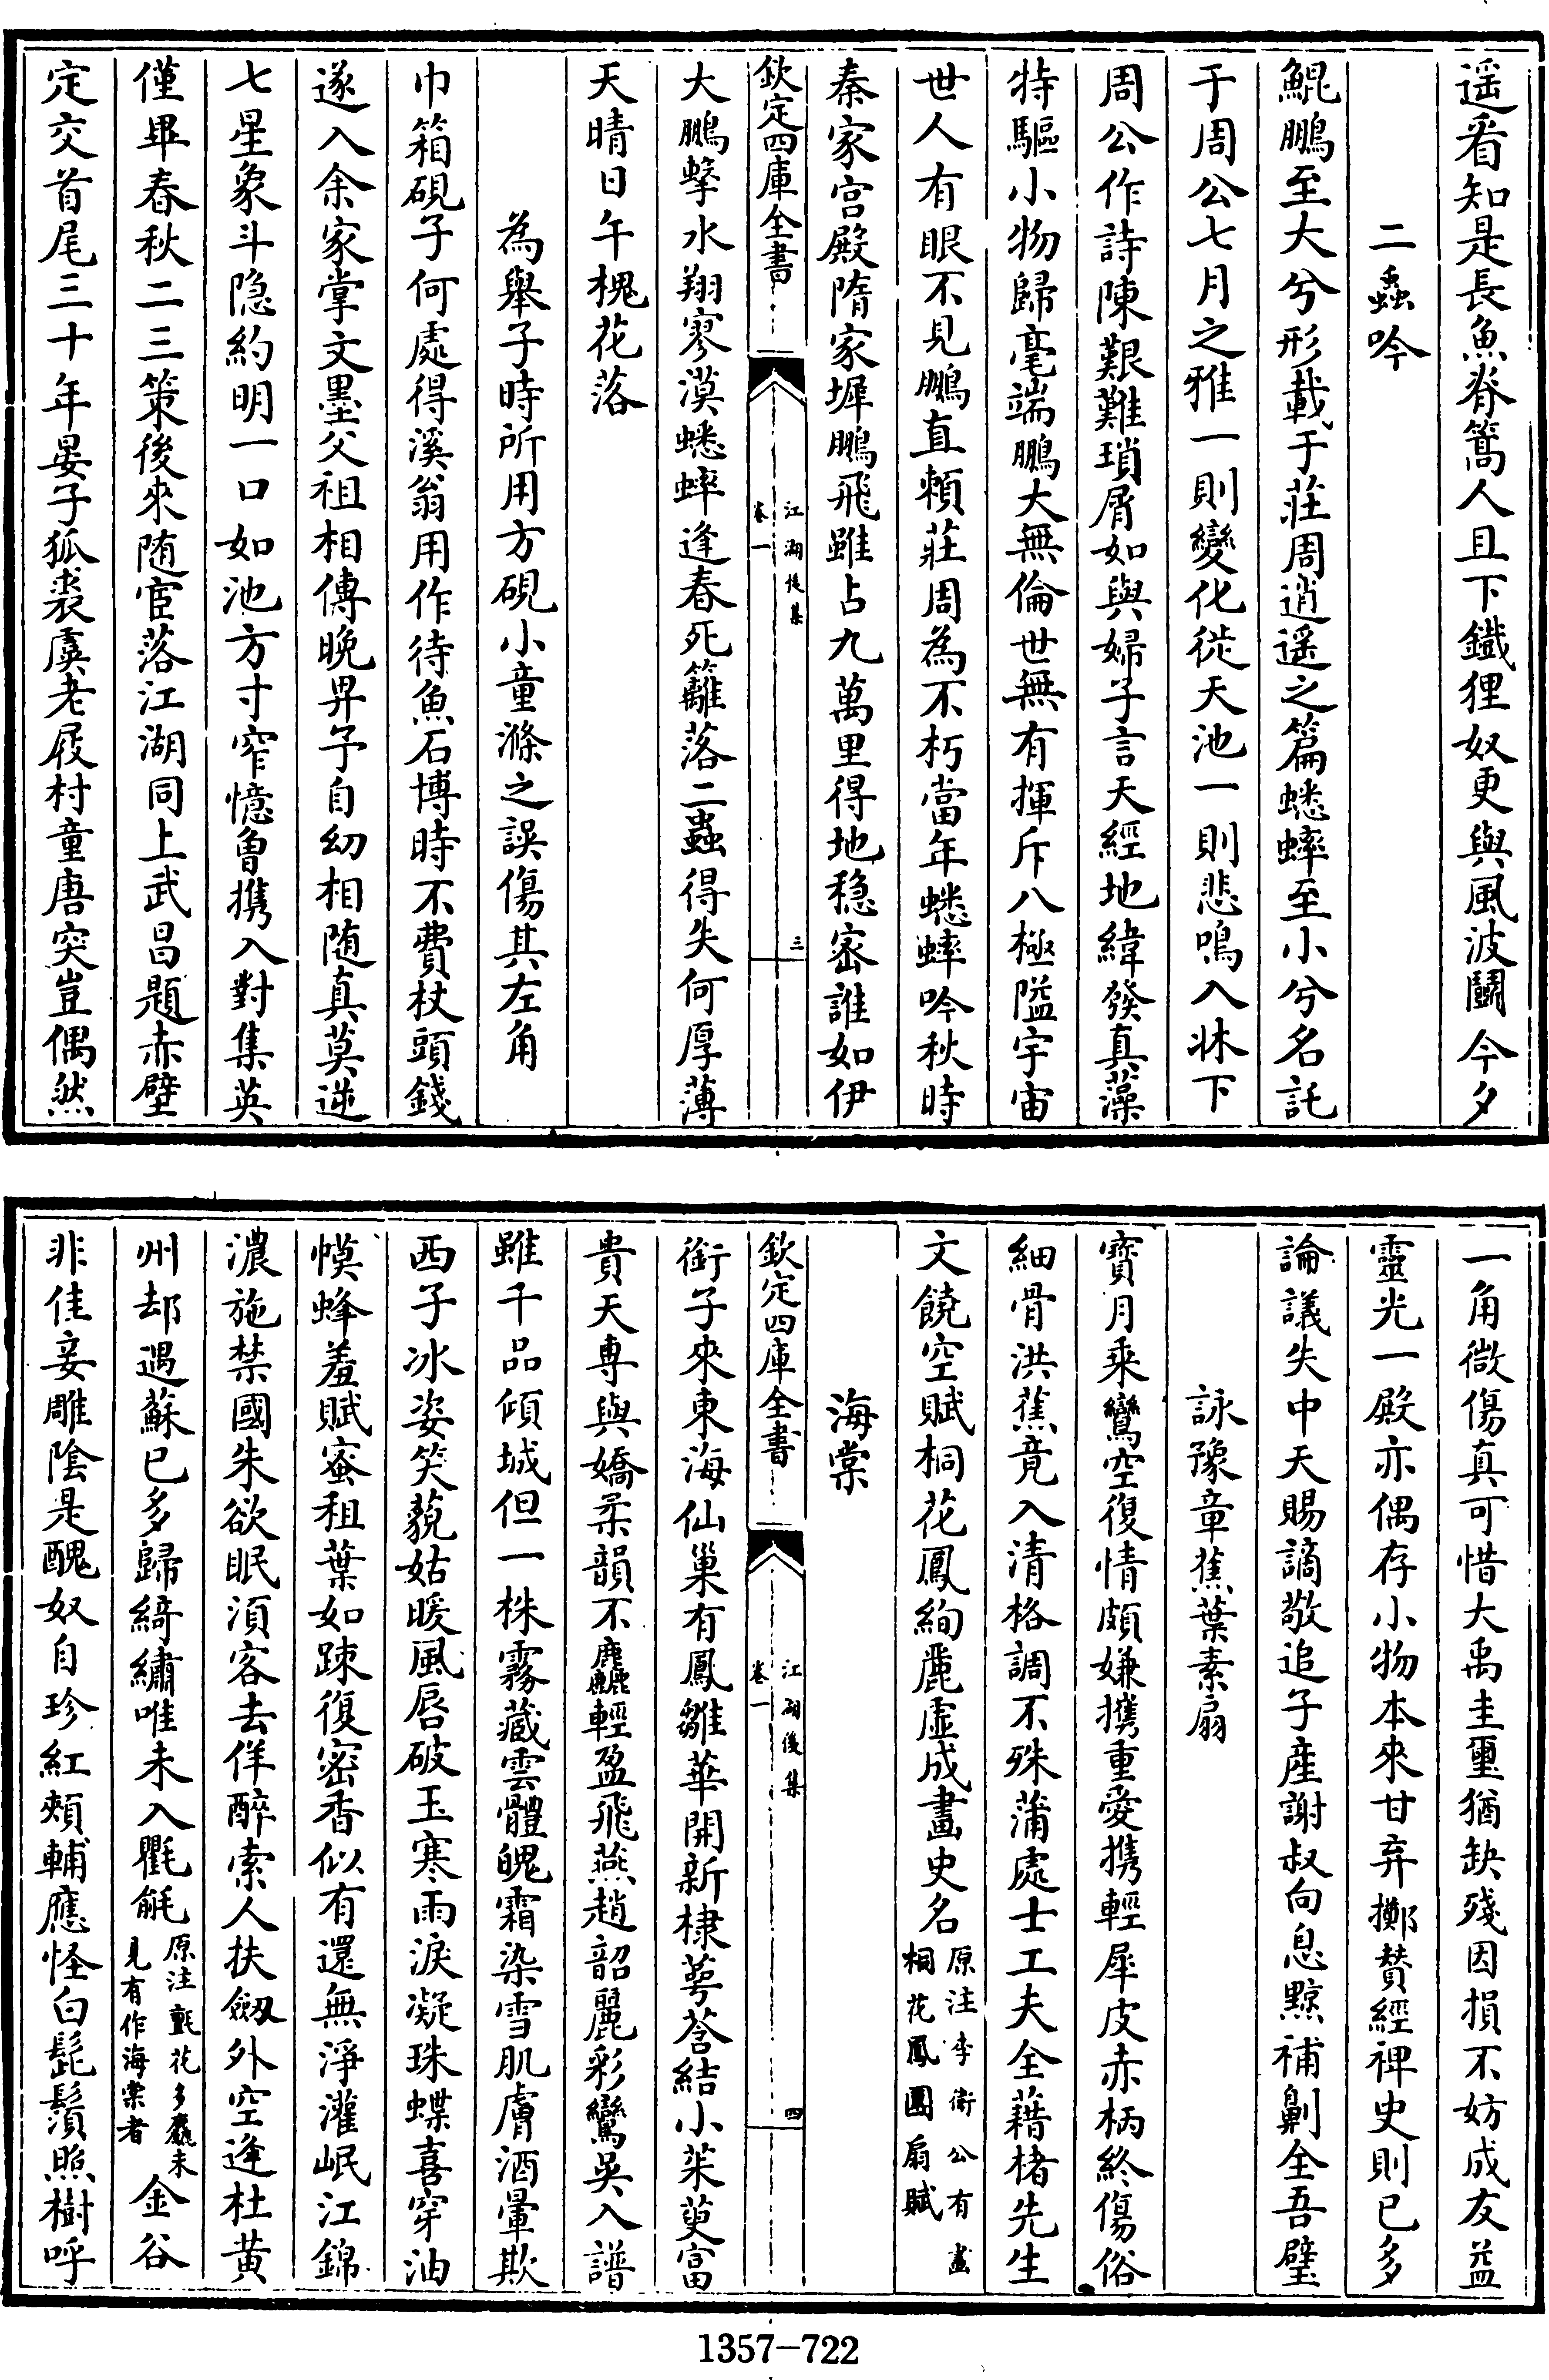 遥看知是長魚脊篙人且下鐡狸奴更與風波鬬今夕
二蟲吟
鯤鵬至大兮形載于莊周逍遥之篇蟋蟀至小兮名託
于周公七月之雅一則變化從天池一則悲鳴入牀下
周公作詩陳艱難瑣屑如與婦子言天經地緯發真藻
特驅小物歸毫端鵬大無倫世無有揮斥八極隘宇宙
世人有眼不見鵬直頼莊周為不朽當年蟋蟀吟秋時
秦家宫殿隋家墀鵬飛雖占九萬里得地穏宻誰如伊
欽定四庫全書
江湖後集
卷一
三
大鵬擊水翔寥漠蟋蟀逢春死籬落二蟲得失何厚薄
天晴日午槐花落
為舉子時所用方硯小童滌之誤傷其左角
巾箱硯子何處得溪翁用作待魚石博時不費杖頭錢
遂入余家掌文墨父祖相傳晩畀予自幼相随真莫逆
七星象斗隠約明一口如池方寸窄憶曾携入對集英
僅畢春秋二三策後來随宦落江湖同上武昌題赤壁
定交首尾三十年晏子狐裘虞老屐村童唐突豈偶然
一角微傷真可惜大禹圭璽猶缺殘因損不妨成友益
靈光一殿亦偶存小物本來甘弃擲贊經禆史則已多
論議失中天賜謫敬追子産謝叔向息黥補劓全吾璧
詠豫章蕉葉素扇
寳月乘鸞空復情頗嫌攜重愛携輕犀皮赤柄終傷俗
細骨洪蕉竟入清格調不殊蒲處士工夫全藉楮先生
文饒空賦桐花鳳絢麗虚成畫史名原注李衛公有畫
桐花鳳團扇賦
海棠
欽定四庫全書
江湖後集
卷一
四
銜子來東海仙巢有鳳雛華開新棣萼莟結小茱萸富
貴天專與嬌柔韻不麤輕盈飛燕趙韶麗彩鸞吳入譜
雖千品傾城但一株霧藏雲體魄霜染雪肌膚酒暈欺
西子冰姿笑藐姑暖風唇破玉寒雨淚凝珠蝶喜穿油
幙蜂羞賦蜜租葉如疎復密香似有還無淨灌岷江錦
濃施禁國朱欲眠湏客去佯醉索人扶劔外空逢杜黄
州却遇蘇已多歸綺繡唯未入氍毹原注氈花多麤未
見有作海棠者金谷
非佳妾雕陰是醜奴自珍紅頰輔應怪白髭鬚照樹呼
1357-722